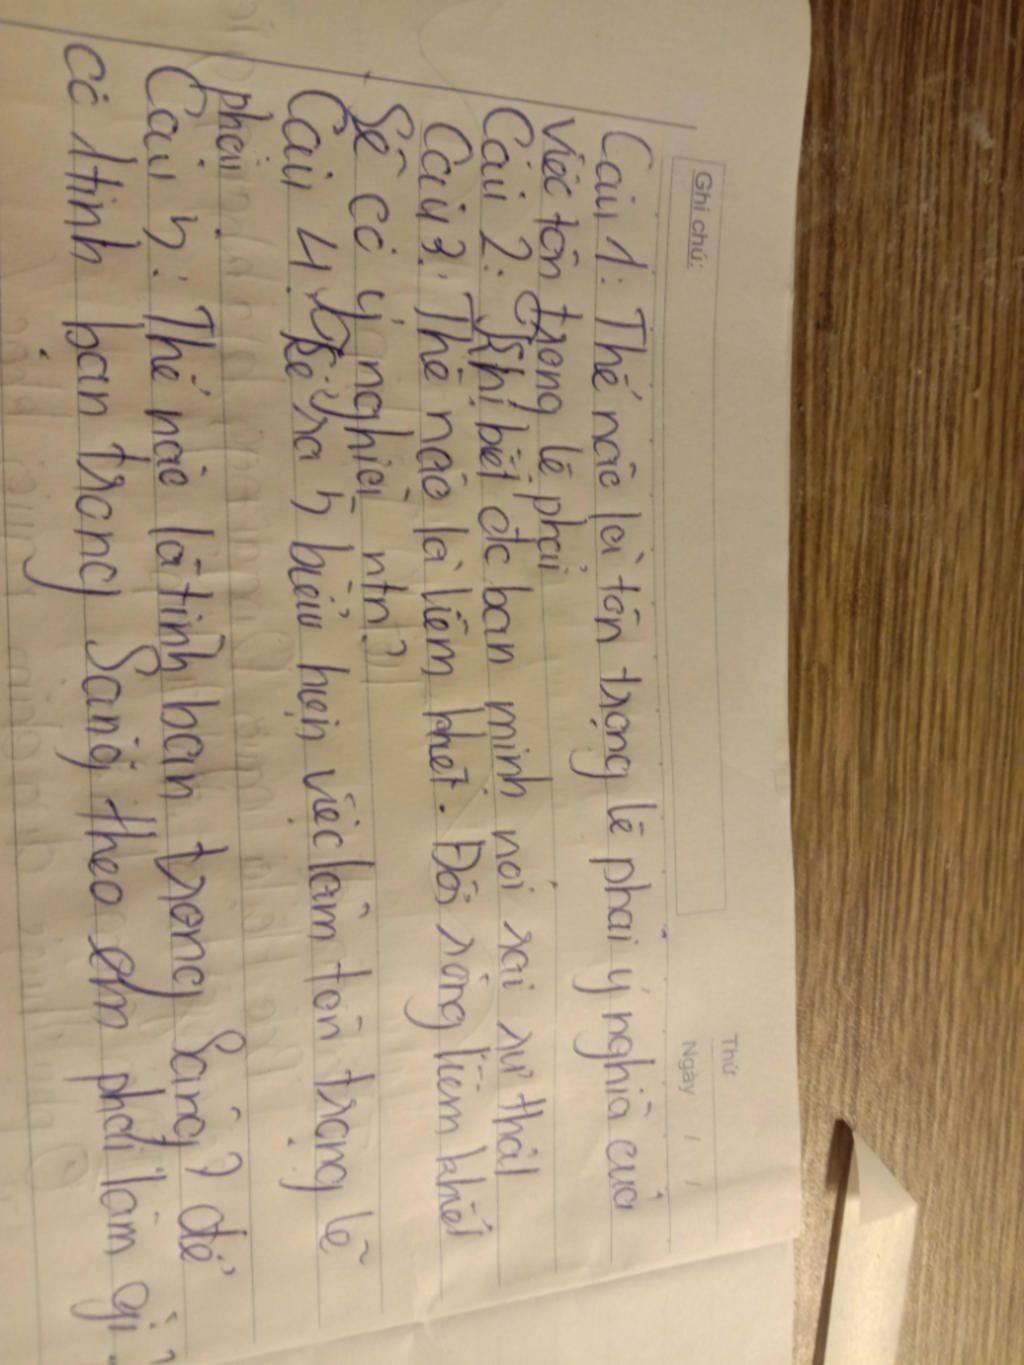 Thứ
Ngày / /
Ghi chú:
Câu 1: Thế nào là tôn trọng lẽ phải ý nghĩa của
việc tôn trọng lẽ phải
Câu 2: Khi biết đc bạn mình nói sai sự thật
Câu 3: Thế nào là liêm khiết. Đời sống liêm khiết
sẽ có ý nghĩa ntn?
Câu 4: Kể ra 5 biểu hiện việc làm tôn trọng lẽ
phải
Câu 5: Thế nào là tình bạn trong sáng? để
có 1 tình bạn trong sáng theo em phải làm gì?